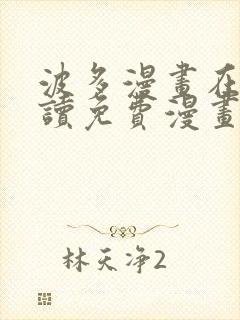 波多漫畫在
讀免費漫畫
林天净2